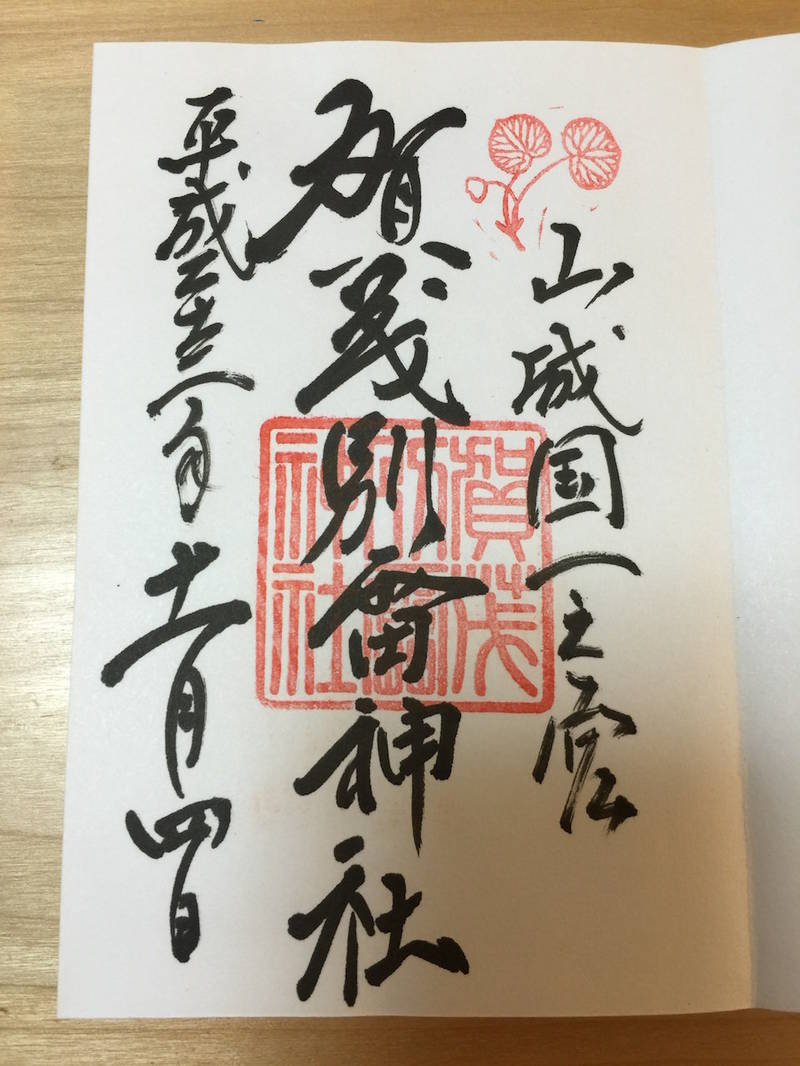 山城国一之宮
賀茂別雷神社
平成二十年十一月四日
賀茂
別雷
神社